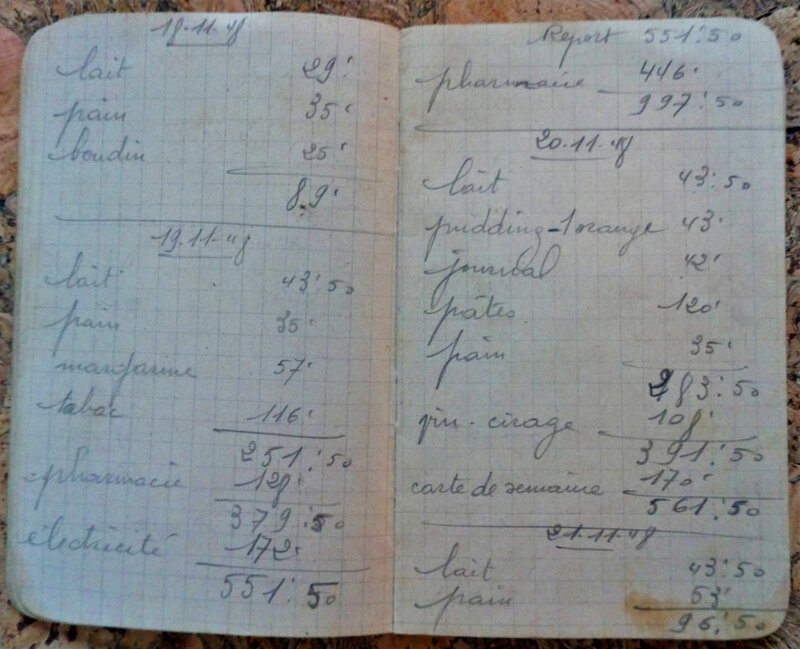 18.11.48
lait 29'
pain 35'
boudin 25'
89'
19.11.48
lait 43'50
pain 35'
margarine 57'
tabac 116'
251'50
pharmacie 128'
379'50
électricité 172'
551'50
Report 551'50
pharmacie 446'
997'50
20.11.48
lait 43'50
pudding-1 orange 43'
journal 42'
pâtes 120'
pain 35'
283'50
cirage 108'
391'50
carte de semaine 170'
561'50
21.11.48
lait 43'50
pain 53'
96'50